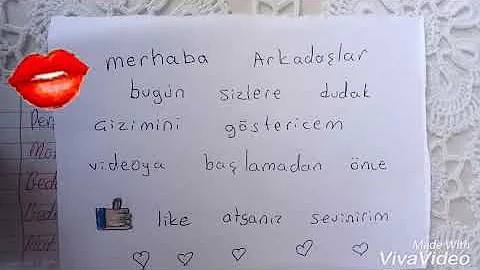 merhaba Arkadaşlar
bugün sizlere dudak
çizimini göstericem
videoya başlamadan önce
like atsanız sevinirim
Made With
VivaVideo